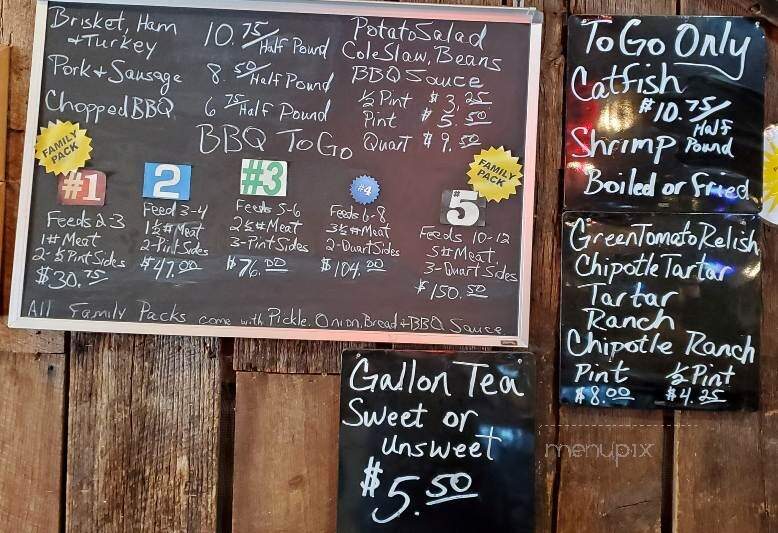 Brisket, Ham
+Turkey 10.75/Half Pound
Pork + Sausage 8.50/Half Pound
Chopped BBQ 6.75/Half Pound
Potato Salad
Cole Slaw, Beans
BBQ Sauce
½ Pint $3.25
Pint $5.50
Quart $9.50
BBQ To Go
FAMILY PACK
FAMILY PACK
#1
Feeds 2-3
1# Meat
2-½ Pint Sides
$30.75
2
Feed 3-4
1½# Meat
2-Pint Sides
$47.00
#3
Feeds 5-6
2½# Meat
3-Pint Sides
$76.00
#4
Feeds 6-8
3½# Meat
2-Quart Sides
$104.00
#5
Feeds 10-12
5# Meat,
3-Quart Sides
$150.50
All Family Packs come with Pickle, Onion, Bread + BBQ Sauce
To Go Only
Catfish
$10.75/Half Pound
Shrimp
Boiled or Fried
Green Tomato Relish
Chipotle Tartar
Tartar
Ranch
Chipotle Ranch
Pint ½ Pint
$8.00 $4.25
Gallon Tea
Sweet or
unsweet
$5.50
menupix